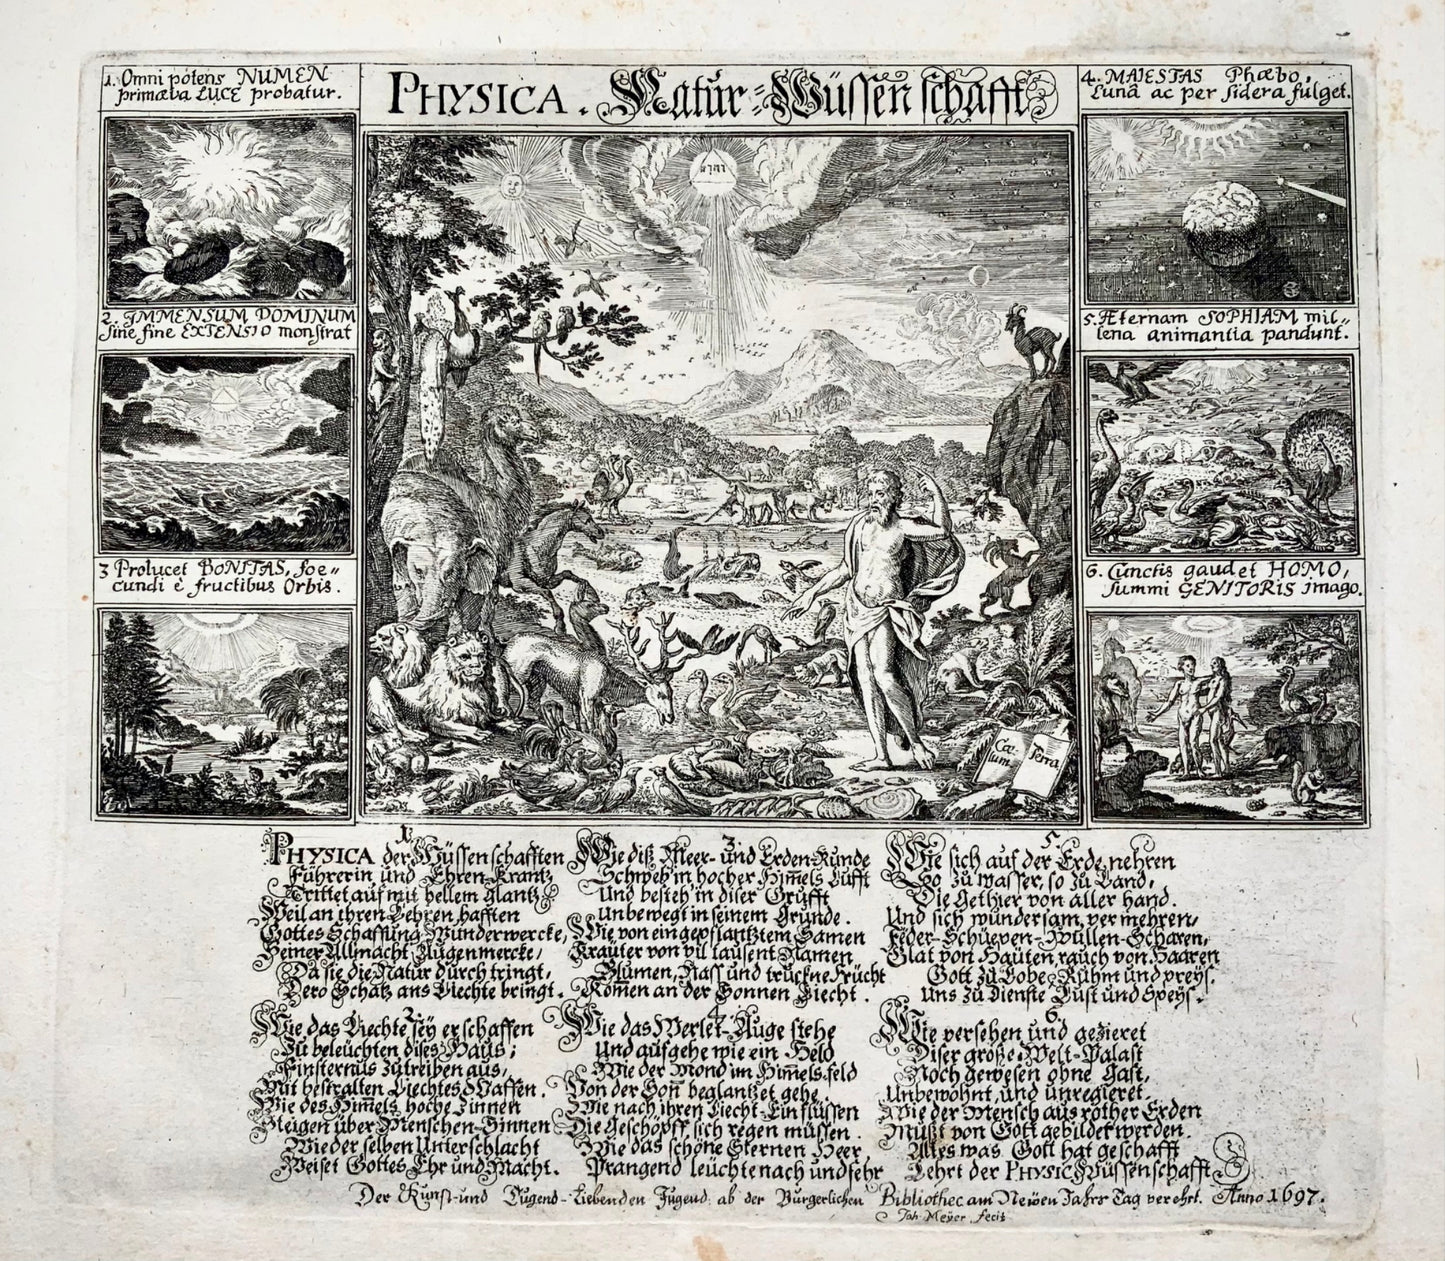 1. Omni potens NUMEN
primæva LUCE probatur.
PHYSICA. Natur-Wüssenschafft
4. MAIESTAS Phœbo,
Luna ac per sidera fulget.
2. IMMENSUM DOMINUM
sine fine EXTENSIO monstrat
5. Æternam SOPHIAM mil„
lena animantia pandunt.
3 Prolucet BONITAS, foe„
cundi è fructibus Orbis.
6. Cunctis gaudet HOMO,
summi GENITORIS imago.
יהוה
Cœ-
lum
Terra
1.
PHYSICA der Wüssenschafften
Führerin und Ehren-Krantz
Trittet auf mit hellem glantz
Weil an ihren Lehren hafften
Gottes Schaffung Wunderwercke,
Seiner Allmacht Augenmercke,
Da sie die Natur durch tringt,
Dero Schatz ans Liechte bringt.
2.
Wie das Liechte sey erschaffen
Zu beleüchten dises Haus;
Finsternus zutreiben aus,
Mit bestralten Liechtes Waffen.
Wie des Himels hoche Zinnen
Steigen über Menschen-Sinnen
Wie derselben Unterschlacht
Weiset Gottes Ehr und Macht.
3.
Wie diß Meer- und Erden-Runde
Schweb in hocher Himels Lufft
Und besteh in diser Grufft
Unbewegt in seinem Grunde.
Wie von eingepflantztem Samen
Kräuter von vil tausent Namen
Blumen, Nass und truckne Frücht
Komen an der Sonnen Liecht.
4.
Wie das Werlet-Auge stehe
Und aufgehe wie ein Held
Wie der Mond im Himels-feld
Von der Son beglantzet gehe.
Wie nach ihren Liecht-Einflüssen
Die Geschöpff sich regen müssen.
Wie das schöne Sternen Heer,
Prangend leüchte nach und sehr
5.
Wie sich auf der Erde nehren
So zu wasser, so zu Land,
Die Gethier von aller hand.
Und sich wundersam vermehren,
Feder-Schüepen-Wullen-Scharen,
Glat von Hauten, rauch von Haaren
Gott zu Lobe, Ruhm und preÿs,
Uns zu Dienste Lust und Speÿs.
6.
Wie versehen und gezieret
Diser große Welt-Palast
Noch gewesen ohne Gast,
Unbewohnt, und unregieret.
Wie der Mensch aus rother Erden
Müßt von Gott gebildet werden.
Alles was Gott hat geschafft
Lehrt der PHYSIC Wüssenschafft
Der Kunst- und Tugend-Liebenden Jugend ab der Burgerlichen Bibliothec am Neüen Jahrs Tag verehrt. Anno 1697.
Joh. Meÿer fecit